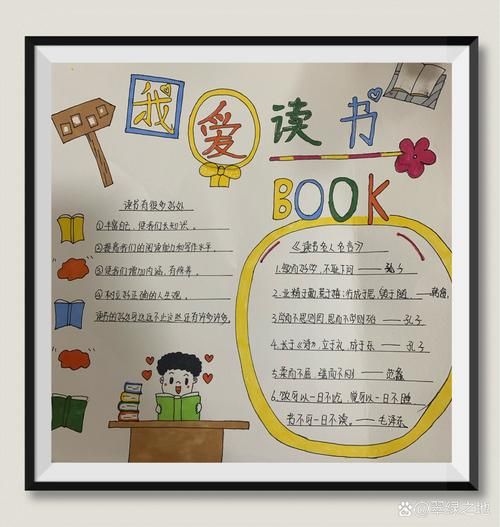 我爱读书
BOOK
读书有很多好处
①丰富自己，使我们长知识。
②提高我们的阅读能力和写作水平。
③使我们增加内涵，有修养。
④树立好正确的人生观。
读书的好处可远远不止这些还有许多许多。
《读书名人名言》
1.敏而好学，不耻下问 —— 孔子
2.业精于勤，荒于嬉；行成于思，毁于随 —— 韩愈
3.学而不思则罔，思而不学则殆 —— 孔子
4.长于《诗》，立于礼，成于乐 —— 孔子
5.柔而不屈，强而不刚 ——
6.饭可以一日不吃，觉可以一日不睡
书不可一日不读。—— 毛泽东
百家号@翠绿之地